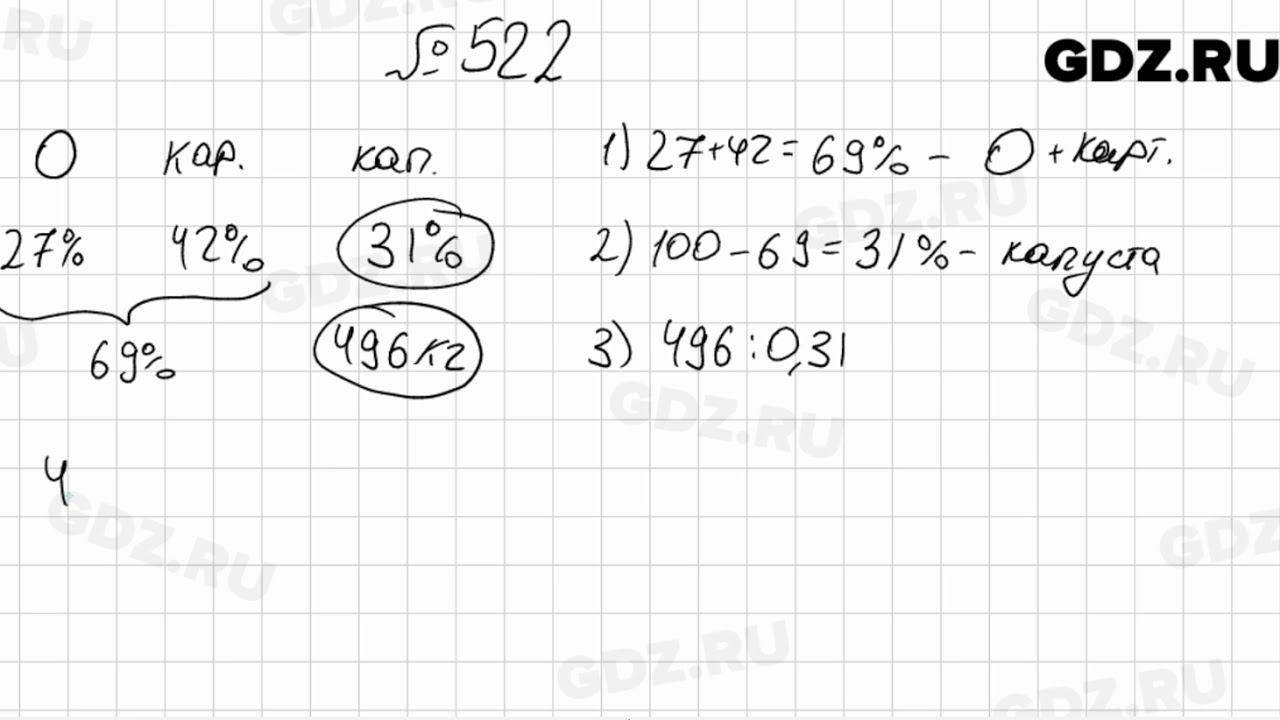 №522
GDZ.RU
О кар. кап.
27% 42% 31%
69% 496кг
1) 27+42=69% - О + карт.
2) 100-69=31% - капуста
3) 496:0,31
4